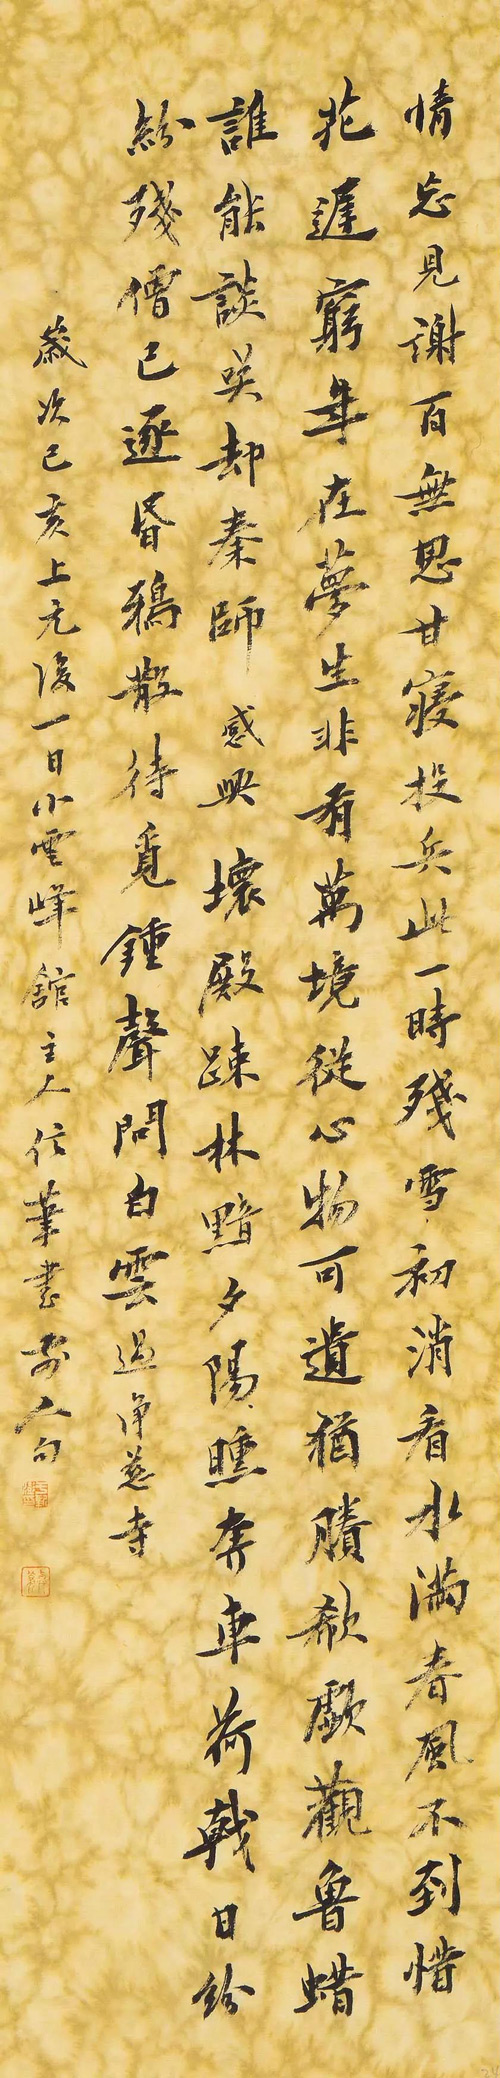 情忘見謝百無思甘寢投兵此一時殘雪初消看水滿春風不到惜
花遲窮年在夢生非有萬境從心物可遺猶臏欷歔觀魯蜡
誰能談笑却秦師 感興 壞殿疎林黯夕陽曛奔車荷戟日紛
紛殘僧已逐昏鴉散待覓鍾聲問白雲 過淨慈寺
歲次己亥上元後一日小雲峰館主人信筆書前人句